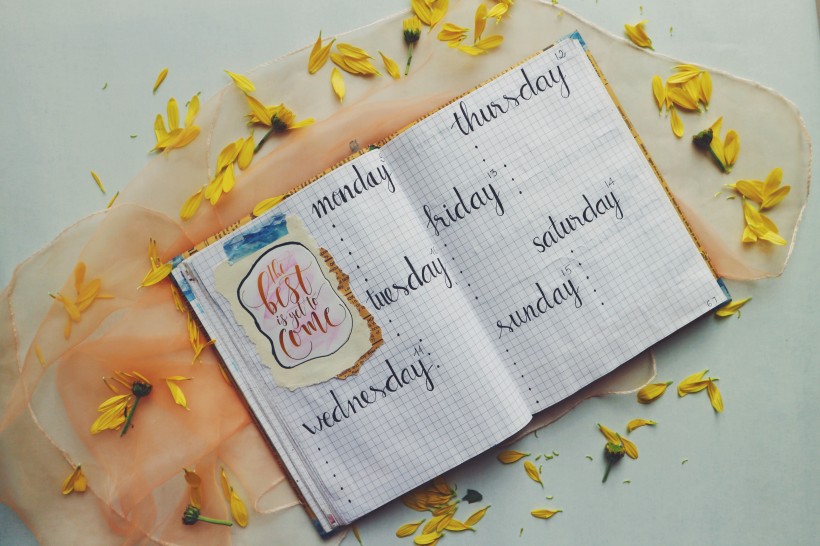 monday
the
best
is yet to
come
tuesday
wednesday 11
thursday 12
friday 13
saturday 14
sunday 15
67